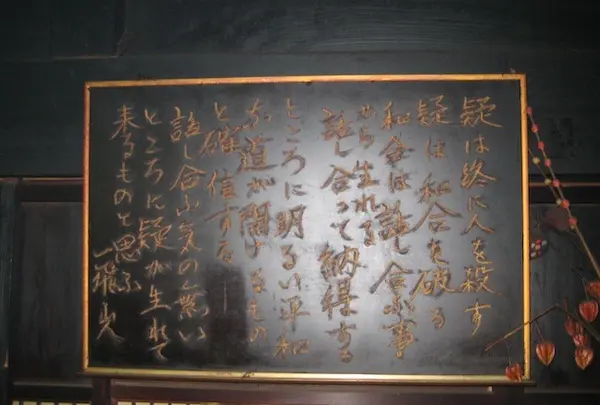 疑は終に人を殺す
疑は和合を破る
和合は話し合ふ事
から生れる
話し合って納得する
ところに明るい平和
な道が開けるもの
と確信する
話し合ふ気の無い
ところに疑が生れて
来るものと思ふ